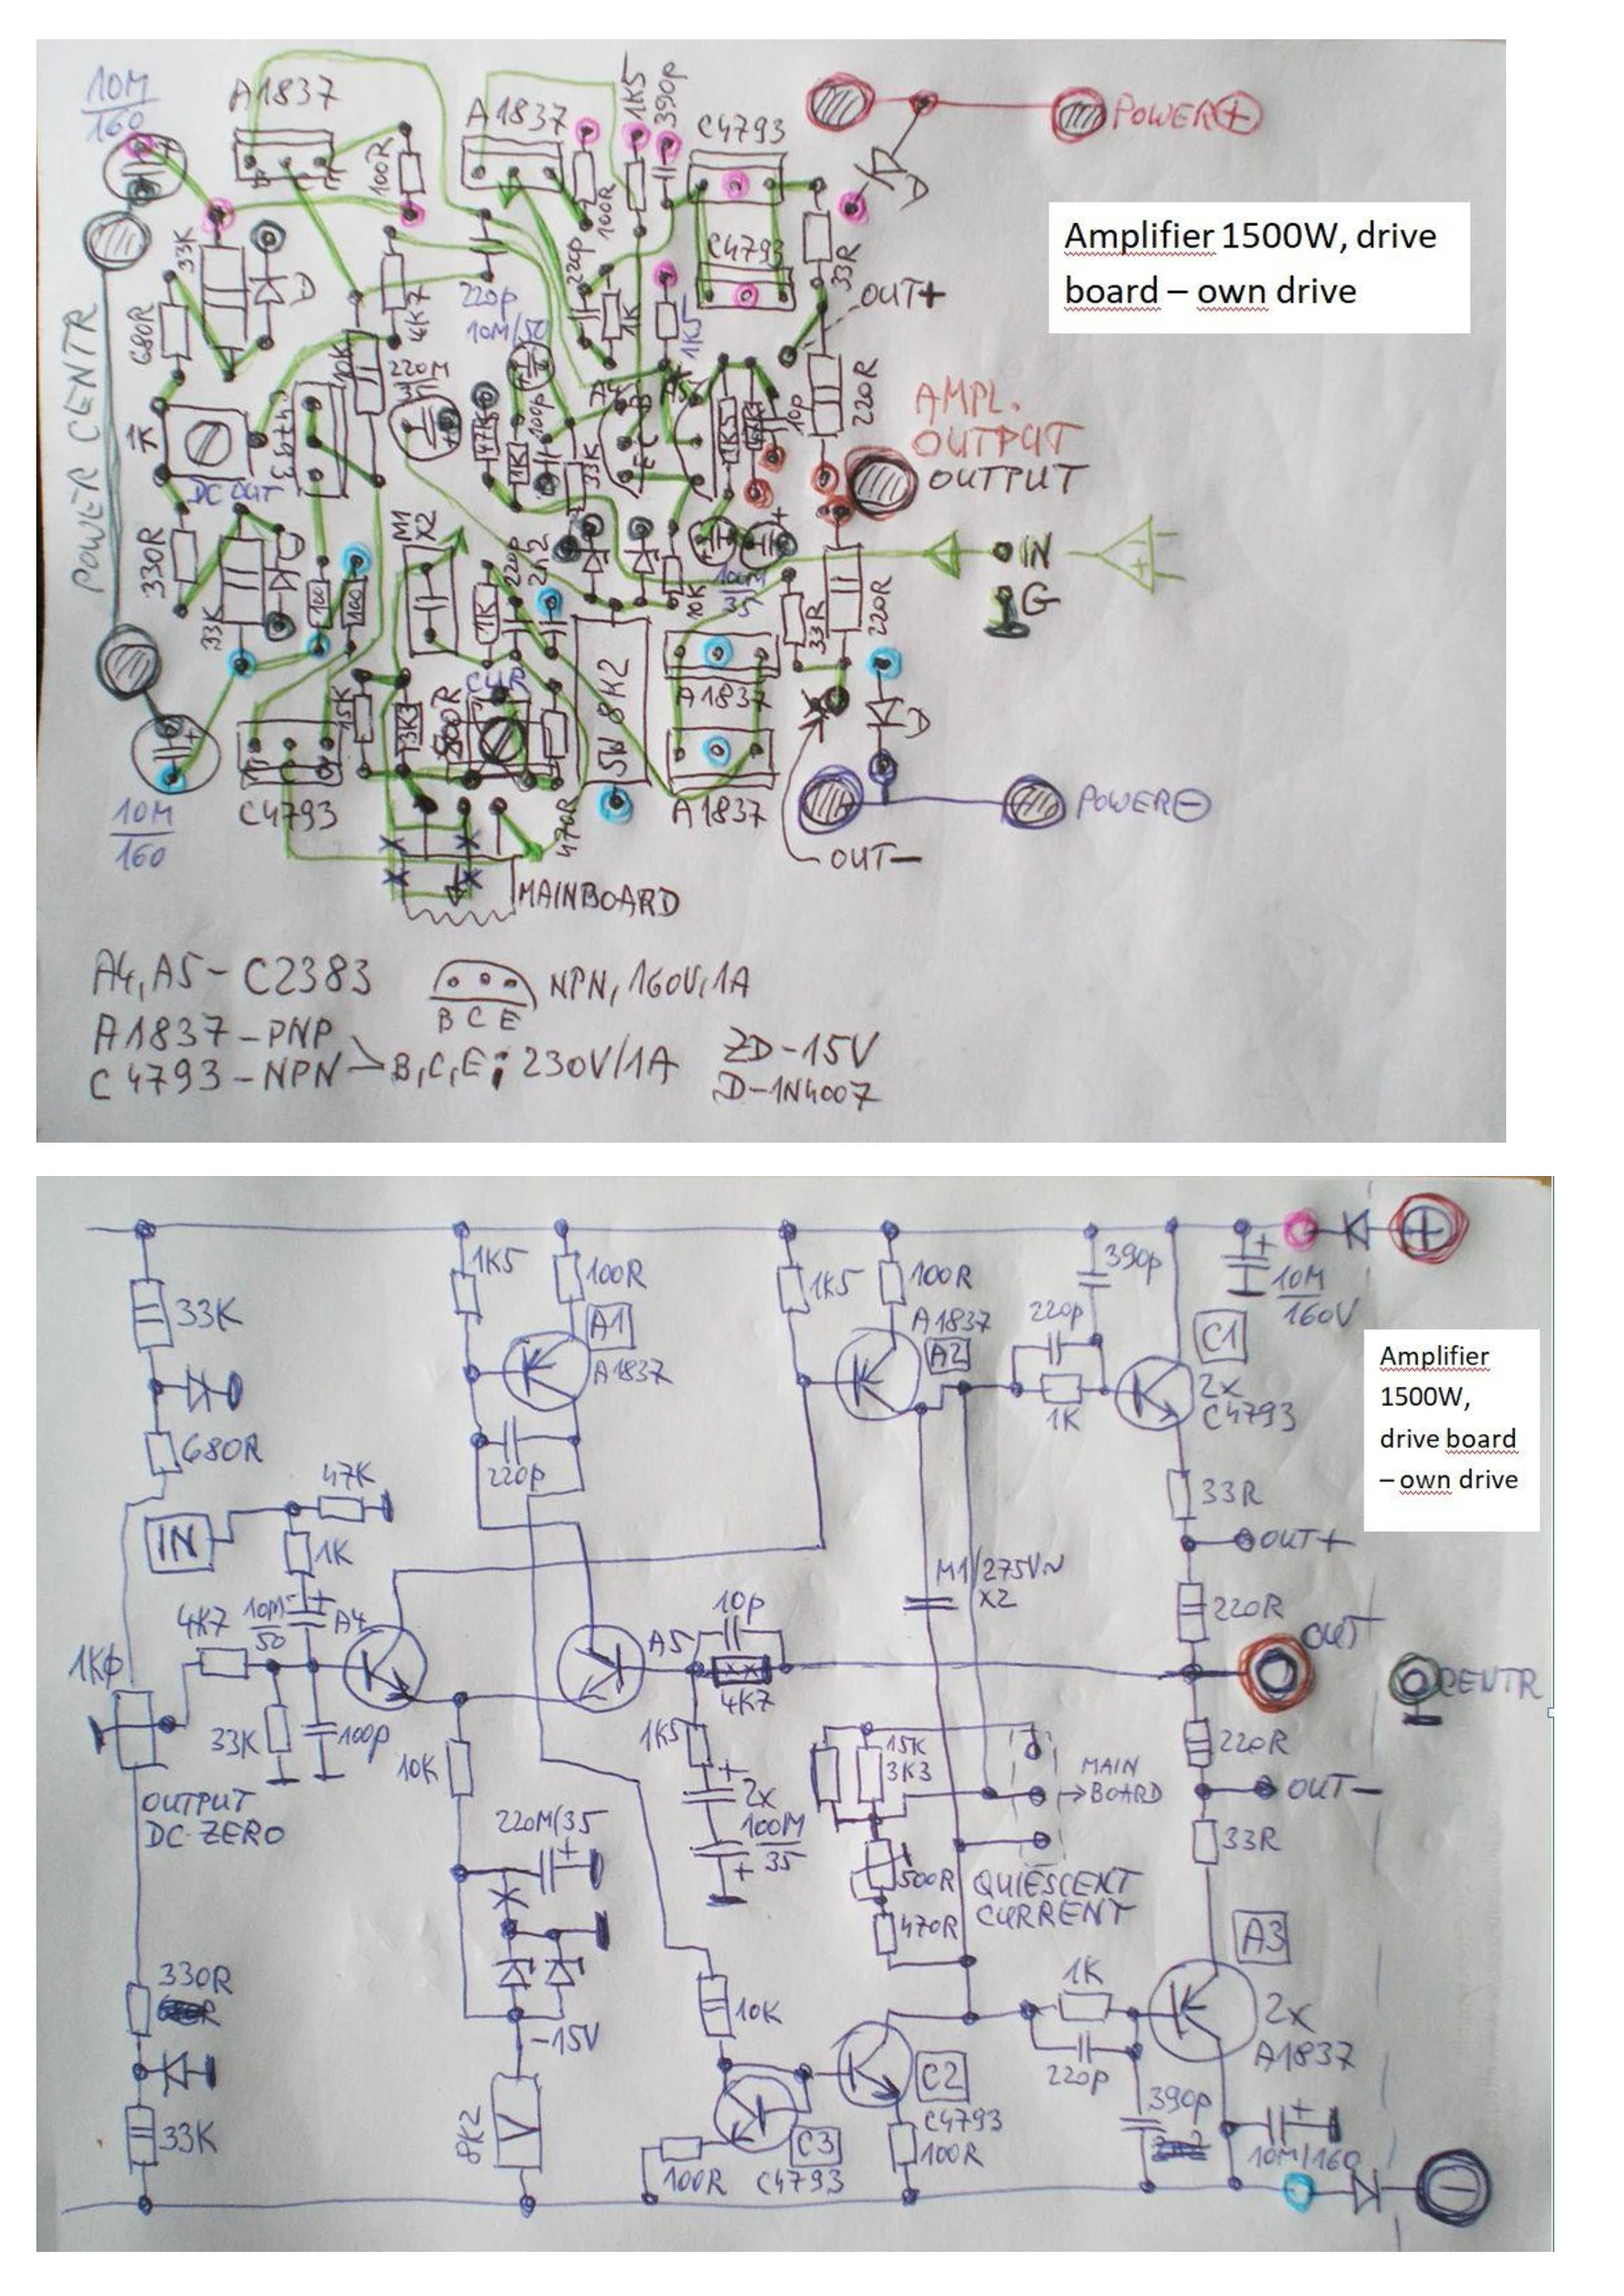 10M
160
A1837
100R
A1837
1K5
390p
C4793
POWER +
D
33K
680R
D
4K7
220p
100R
220p
1K
C4793
33R
OUT+
Amplifier 1500W, drive
board – own drive
10M/50
1K5
10K
220M
POWER CENTR
DC OUT
47K
1K
100p
33K
A4
A5
1K5
10p
220R
AMPL.
OUTPUT
OUTPUT
330R
33K
100
100
M1
X2
1K
220p
2n2
10K
100M
35
33R
220R
IN
G
15K
3K3
500R
5W 8K2
A1837
D
A1837
POWER -
10M
160
C4793
470R
OUT-
MAINBOARD
A4, A5 - C2383
B C E
NPN, 160V, 1A
A1837 - PNP
C4793 - NPN
B, C, E; 230V/1A
ZD-15V
D-1N4007
33K
1K5
100R
A1
A1837
1K5
100R
A1837
A2
390p
220p
1K
C1
2x
C4793
+
10M
160V
Amplifier
1500W,
drive board
– own drive
680R
47K
IN
1K
220p
33R
OUT+
M1/275V~
X2
220R
4K7
10M
50
A4
A5
10p
4K7
OUT
CENTR
33K
100p
10K
1K5
2x
100M
35
15K
3K3
MAIN
BOARD
220R
OUT-
33R
OUTPUT
DC-ZERO
220M/35
500R
470R
QUIESCENT
CURRENT
A3
2x
A1837
330R
-15V
10K
1K
220p
C2
C4793
100R
390p
10M/160
33K
8K2
100R
C3
C4793